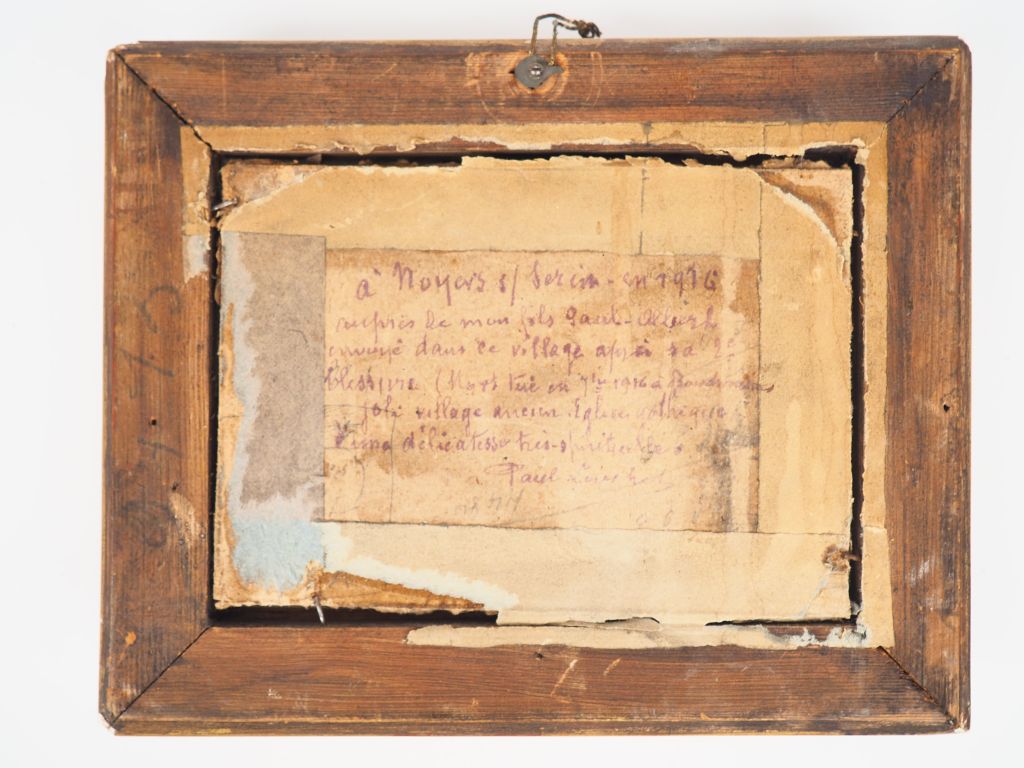 à Noyers s/ Serein - en 1916
auprès de mon fils Paul-Albert
envoyé dans ce village après sa 2e
blessure (Mort tué en 7bre 1916 à
joli village ancien Eglise gothique
d'une délicatesse très-spirituelle.
Paul